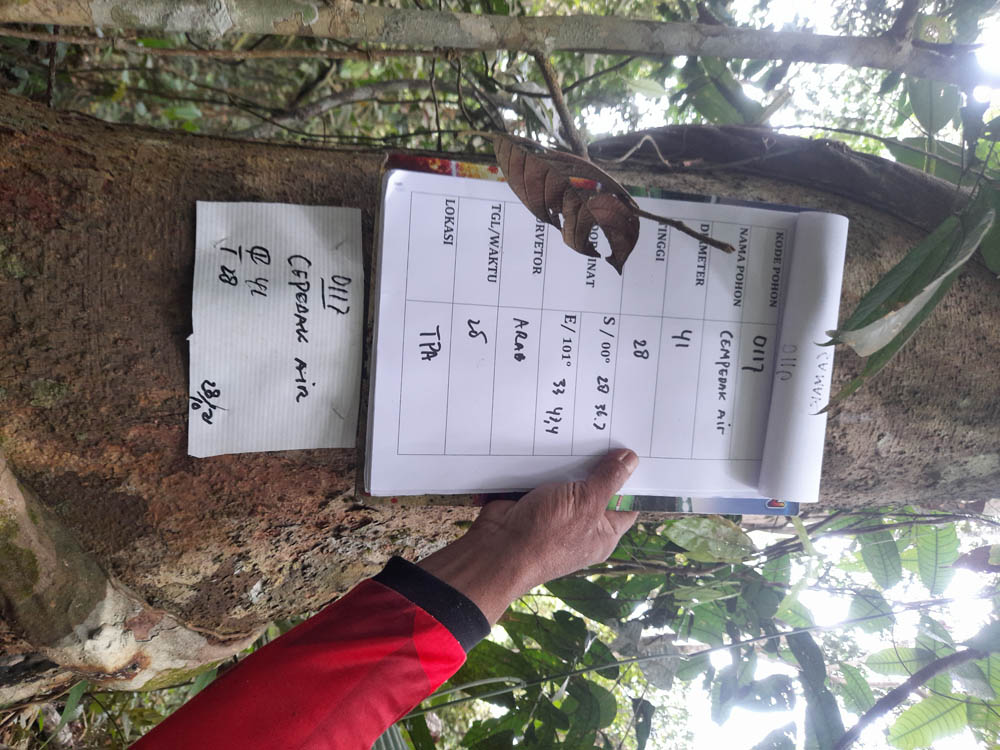 0117
KODE POHON 0117
NAMA POHON CEMPEDAK AIR
DIAMETER 41
TINGGI 28
KOORDINAT S / 00° 28 36.7
E/ 101° 33 43,4
SURVETOR ARAB
TGL/WAKTU 28
LOKASI TPA
0117
CEPEDAK AIR
41
T 28